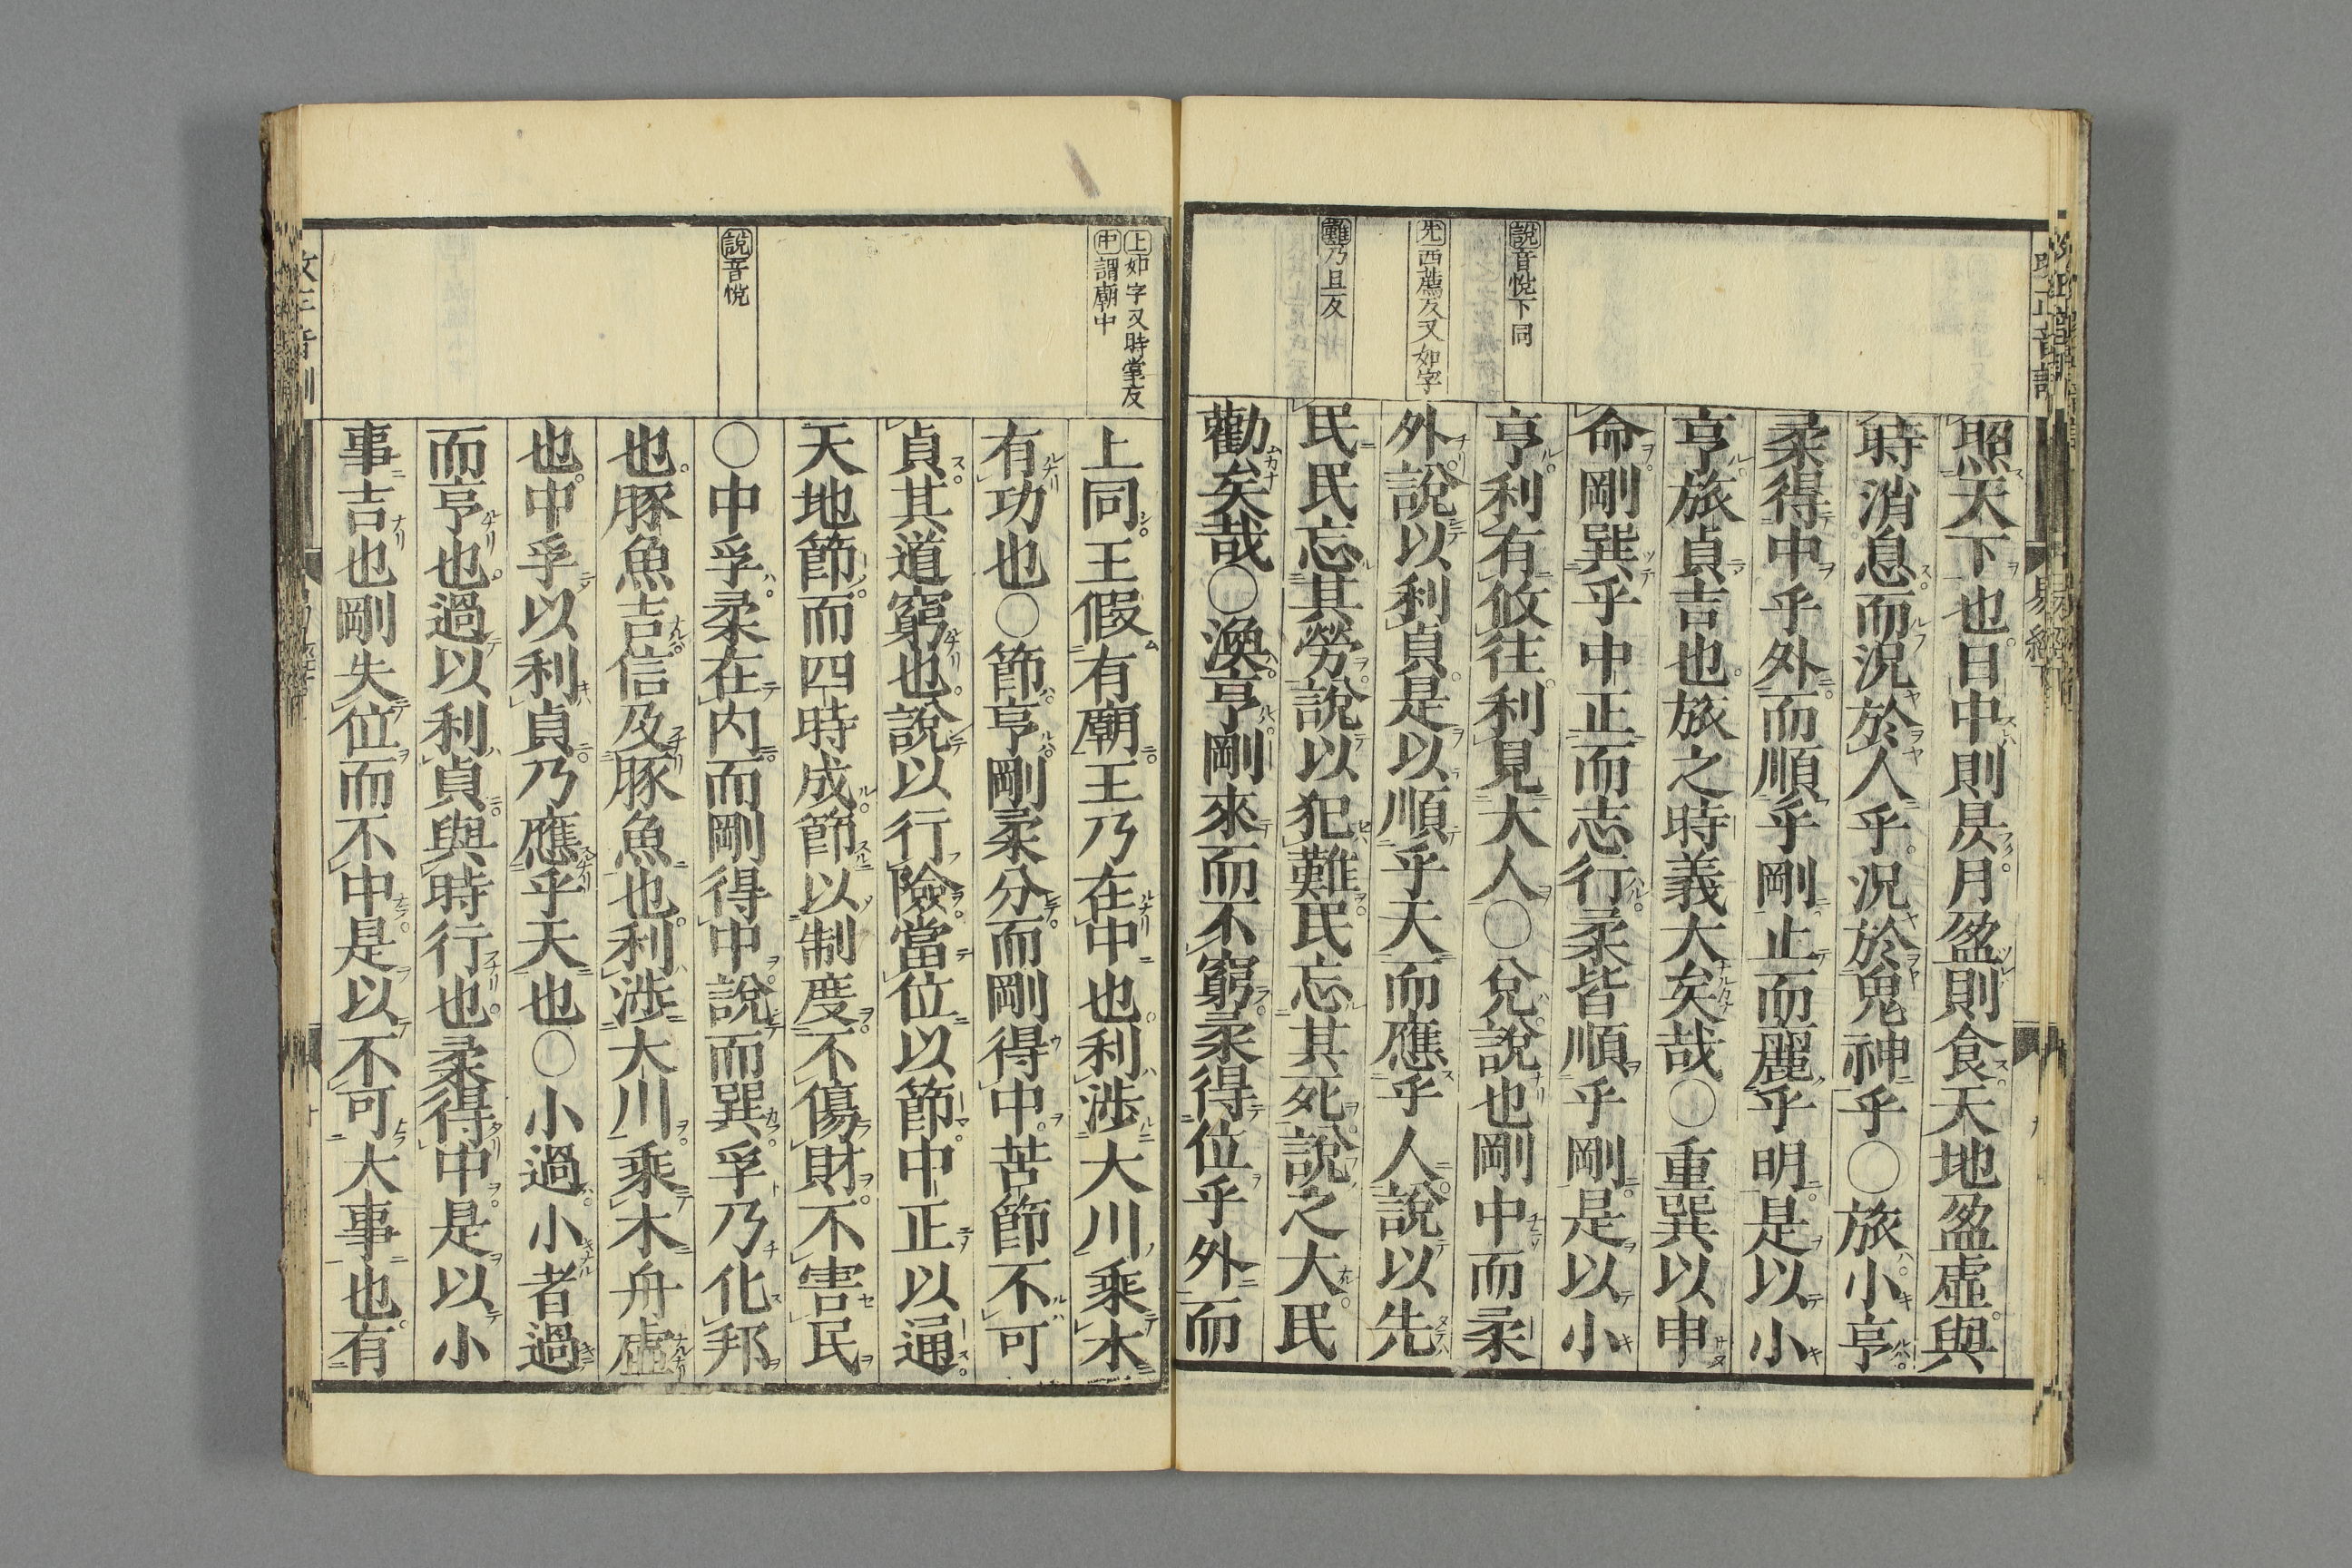 照天下也日中則昃月盈則食天地盈虛與
時消息而況於人乎況於鬼神乎○旅小亨
柔得中乎外而順乎剛止而麗乎明是以小
亨旅貞吉也旅之時義大矣哉○重巽以申
命剛巽乎中正而志行柔皆順乎剛是以小
亨利有攸往利見大人○兌說也剛中而柔
外說以利貞是以順乎天而應乎人說以先
民民忘其勞說以犯難民忘其死說之大民
勸矣哉○渙亨剛來而不窮柔得位乎外而
說音悅下同
先西薦反又如字
難乃且反
上同王假有廟王乃在中也利涉大川乘木
有功也○節亨剛柔分而剛得中苦節不可
貞其道窮也說以行險當位以節中正以通
天地節而四時成節以制度不傷財不害民
○中孚柔在内而剛得中說而巽孚乃化邦
也豚魚吉信及豚魚也利涉大川乘木舟虛
也中孚以利貞乃應乎天也○小過小者過
而亨也過以利貞與時行也柔得中是以小
事吉也剛失位而不中是以不可大事也有
上如字又時掌反
中謂廟中
說音悅